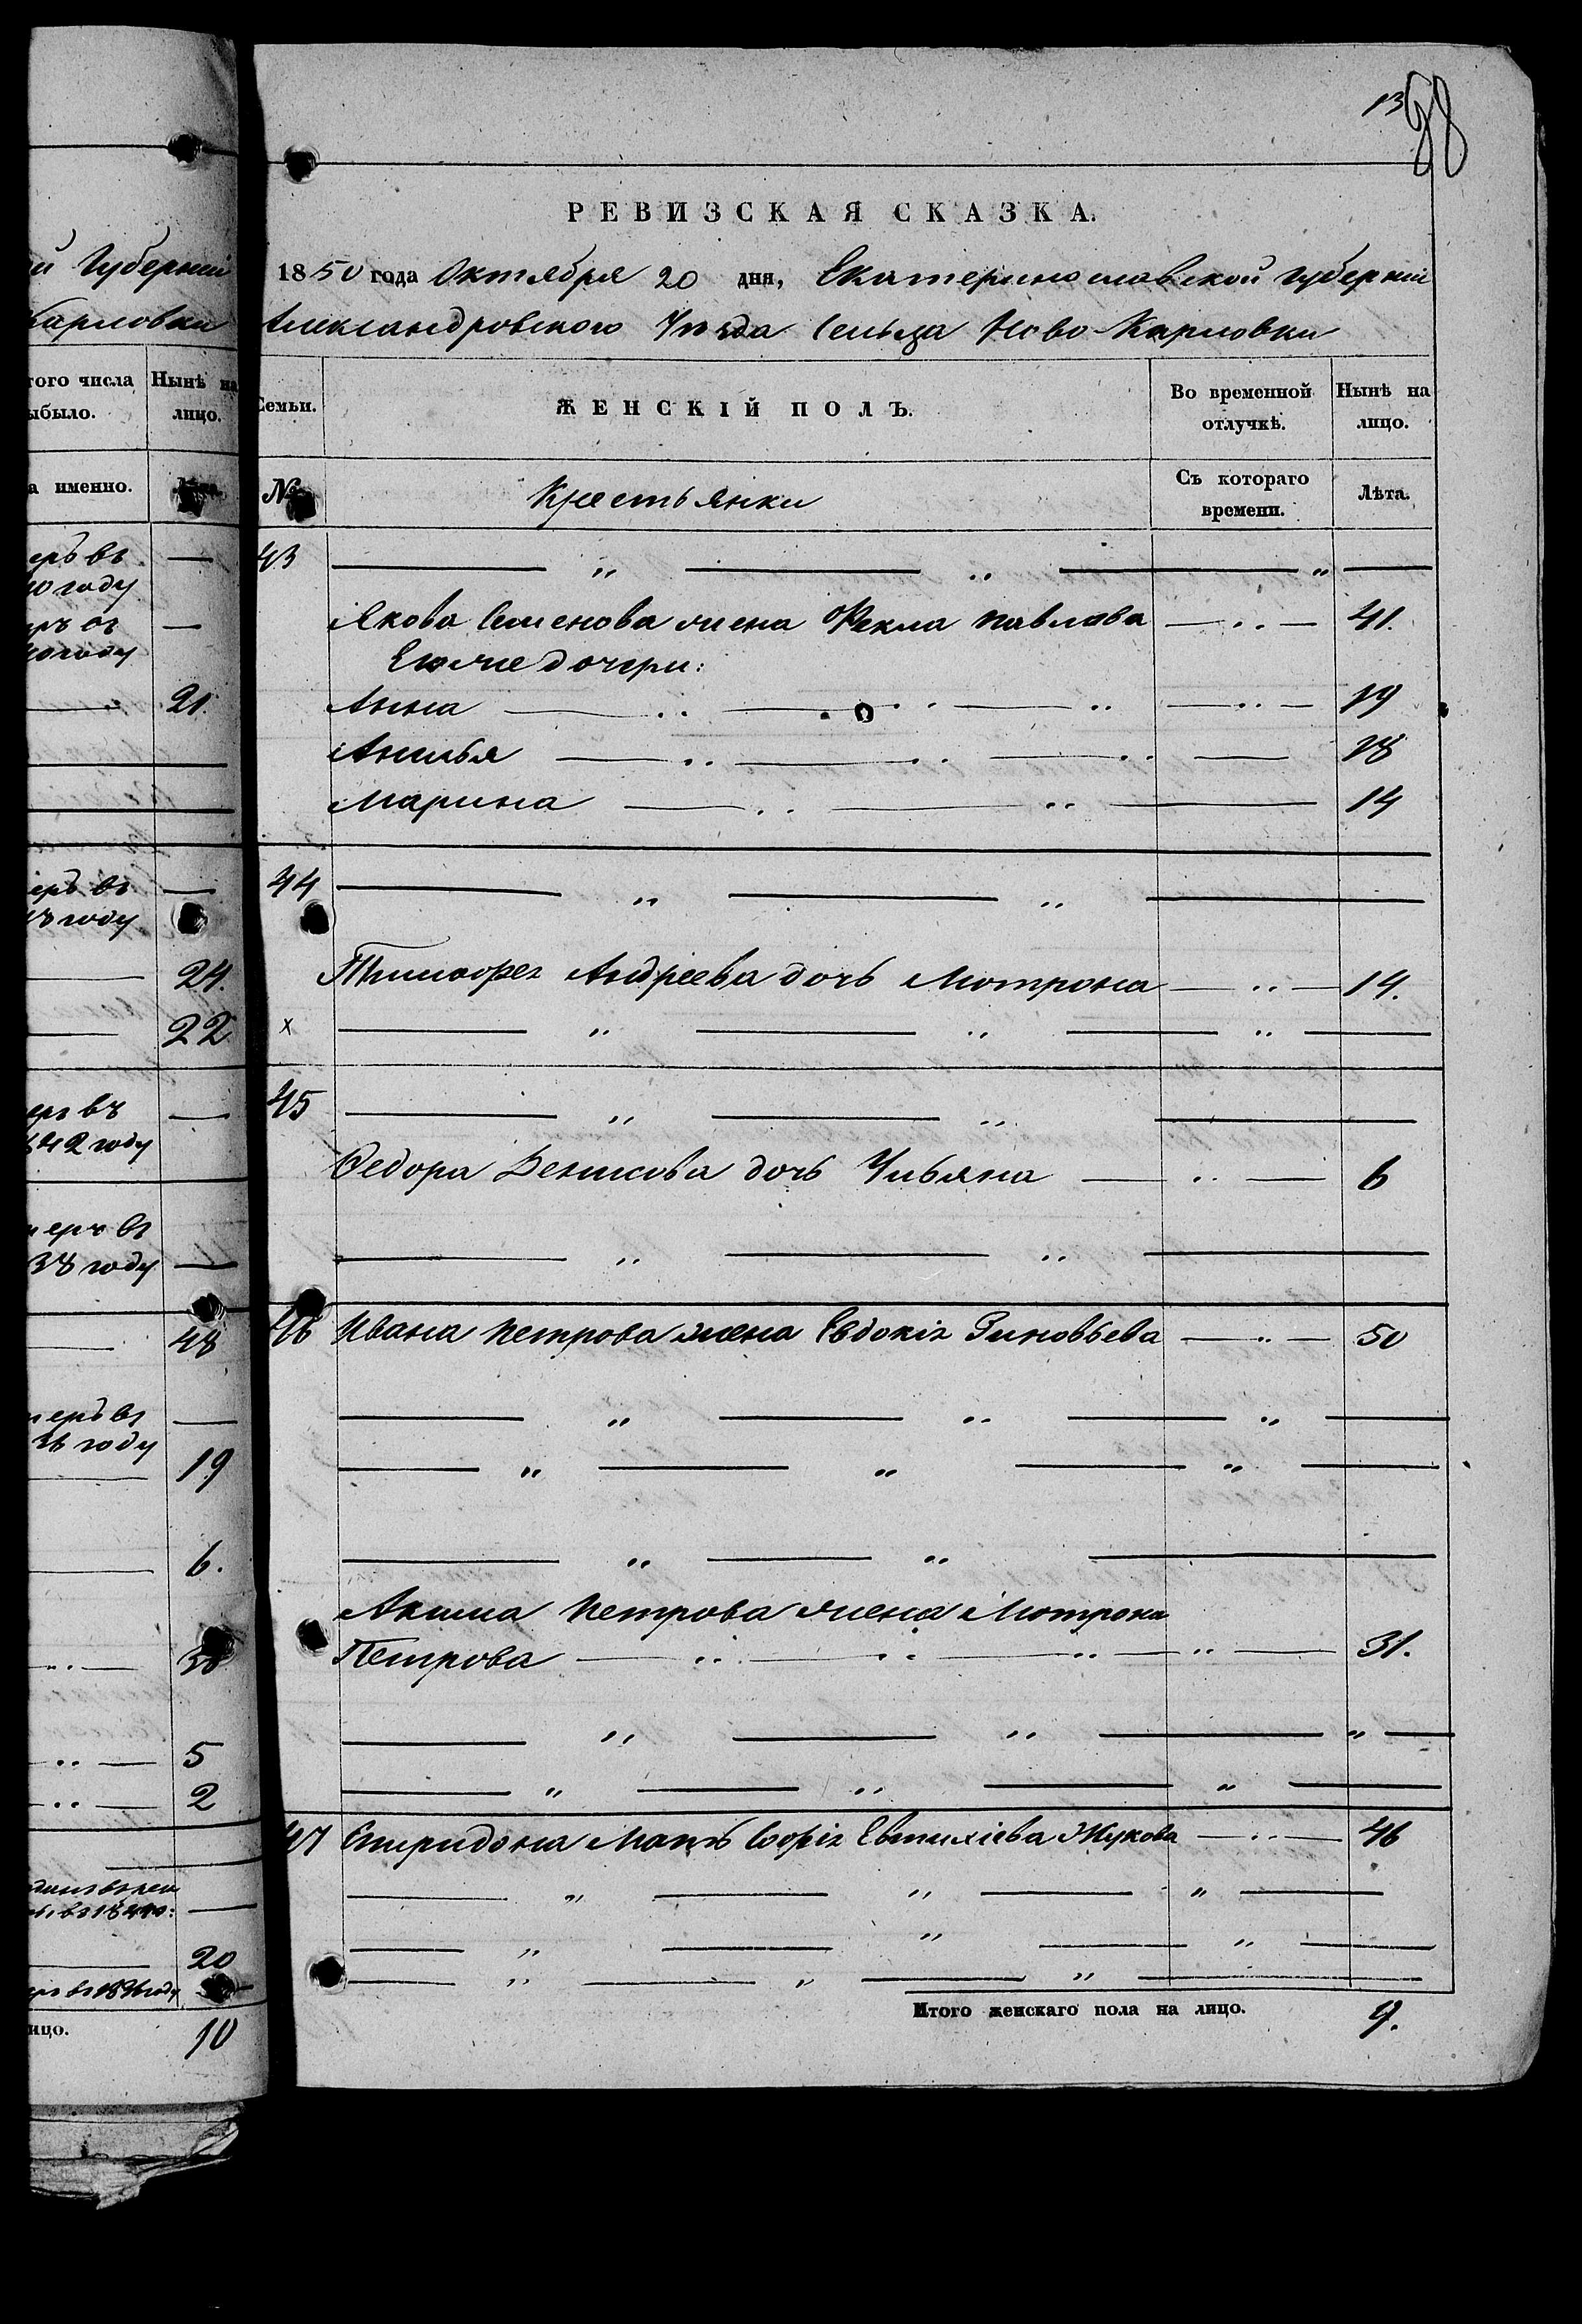 13
98
РЕВИЗСКАЯ СКАЗКА.
1850 года Октября 20 дня, Екатеринославской губерніи
Александровского Уѣзда Сельца Ново-Карловки
Семьи.
ЖЕНСКІЙ ПОЛЪ.
Во временной отлучкѣ.
Нынѣ на лицо.
№
Крестьянки
Съ котораго времени.
Лѣта.
43 — „ — „ — „ —
Якова Семенова жена Фекла Павлова — „ — 41.
Ево же дочери:
Анна — „ — „ — „ — „ — 19
Анилья — „ — „ — „ — 18
Марина — „ — „ — 14
44 — „ — „ —
Тимофея Андреева дочь Мотрона — „ — 14.
х — „ — „ — „ —
45 — „ — „ —
Федора Денисова дочь Ульяна — „ — 6
— „ — „ —
46 Ивана Петрова жена Евдокія Зиновьева — „ — 50
— „ — „ — „ —
— „ — „ — „ —
— „ — „ —
Акима Петрова жена Мотрона
Петрова — „ — „ — „ — „ — 31.
— „ — „ — „ —
— „ — „ — „ —
47 Спиридона Мать Софія Евтихіева Жукова — „ — 46
— „ — „ — „ —
— „ — „ — „ —
— „ — „ — „ —
Итого женскаго пола на лицо. 9.
й Губерніи
Карловки
того числа
ыбыло.
Нынѣ на
лицо.
а именно.
еръ въ —
0 году
21.
еръ въ —
году
24.
22
еръ въ —
842 году
меръ въ
38 году —
48
меръ въ —
36 году
19
6.
30
„ — 5
„ — 2
20
лицо. 10